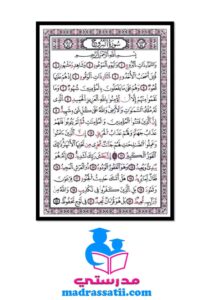 سورة البروج
بسم الله الرحمن الرحيم
والسماء ذات البروج ١ واليوم الموعود ٢ وشاهد ومشهود ٣
قتل أصحاب الأخدود ٤ النار ذات الوقود ٥ إذ هم عليها
قعود ٦ وهم على ما يفعلون بالمؤمنين شهود ٧ وما
نقموا منهم إلا أن يؤمنوا بالله العزيز الحميد ٨ الذي
له ملك السموات والأرض والله على كل شيء شهيد ٩
إن الذين فتنوا المؤمنين والمؤمنات ثم لم يتوبوا فلهم
عذاب جهنم ولهم عذاب الحريق ١٠ إن الذين ءامنوا
وعملوا الصالحات لهم جنات تجري من تحتها الأنهار ذلك
الفوز الكبير ١١ إن بطش ربك لشديد ١٢ إنه هو
يبدئ ويعيد ١٣ وهو الغفور الودود ١٤ ذو العرش المجيد ١٥
فعال لما يريد ١٦ هل أتاك حديث الجنود ١٧ فرعون
وثمود ١٨ بل الذين كفروا في تكذيب ١٩ والله من
ورائهم محيط ٢٠ بل هو قرءان مجيد ٢١ في لوح محفوظ ٢٢
مدرستي
madrassatii.com